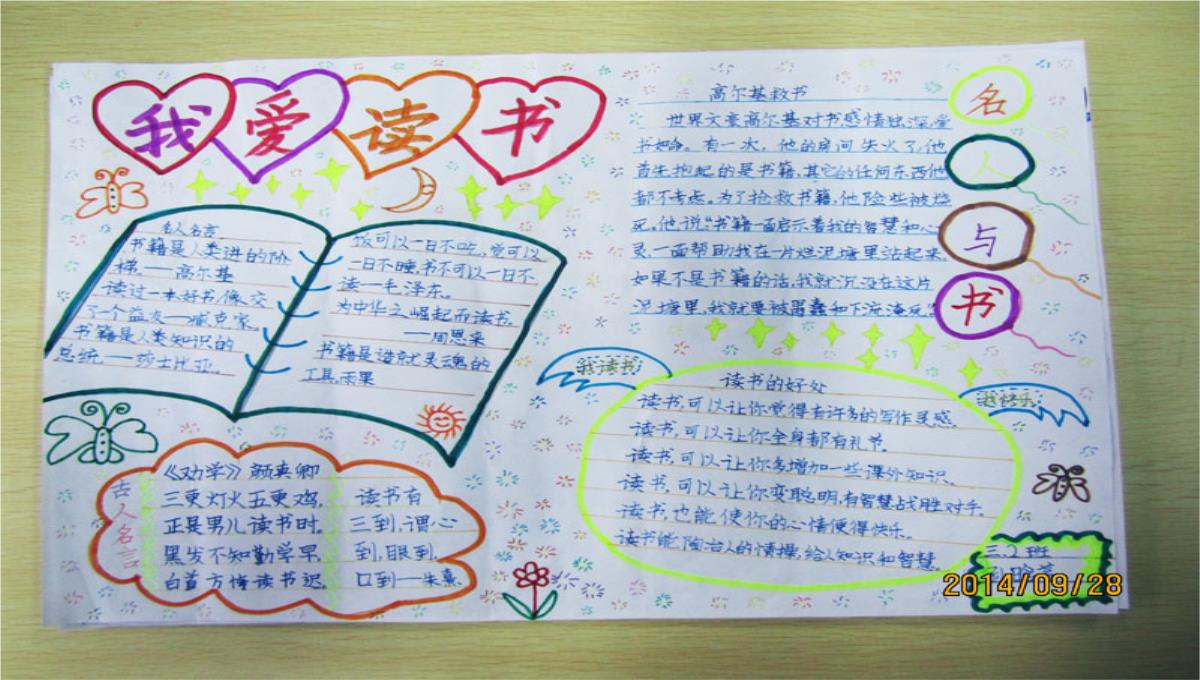 我爱读书
名人名言
书籍是人类进的阶
梯.——高尔基
读过一本好书,像交
了个益友——臧克家.
书籍是人类知识的
总统.——莎士比亚.
饭可以一日不吃,觉可以
一日不睡,书不可以一日不
读—毛泽东.
为中华之崛起而读书.
——周恩来
书籍是造就灵魂的
工具.雨果
古人名言
《劝学》颜真卿
三更灯火五更鸡,
正是男儿读书时.
黑发不知勤学早,
白首方悔读书迟.
读书有
三到,谓心
到,眼到.
口到—朱熹
高尔基救书
世界文豪高尔基对书感情独深,爱
书如命。有一次,他的房间失火了,他
首先抱起的是书籍,其它的任何东西他
都不考虑。为了抢救书籍,他险些被烧
死。他说:"书籍一面启示着我的智慧和心
灵,一面帮助我在一片烂泥塘里站起来,
如果不是书籍的话,我就沉没在这片
泥塘里,我就要被愚蠢和下流淹死。"
名人与书
我读书
我快乐
读书的好处
读书,可以让你觉得有许多的写作灵感.
读书,可以让你全身都有礼节.
读书,可以让你多增加一些课外知识.
读书,可以让你变聪明,有智慧战胜对手.
读书,也能使你的心情便得快乐.
读书能陶冶人的情操,给人知识和智慧.
三.2班
2014/09/28